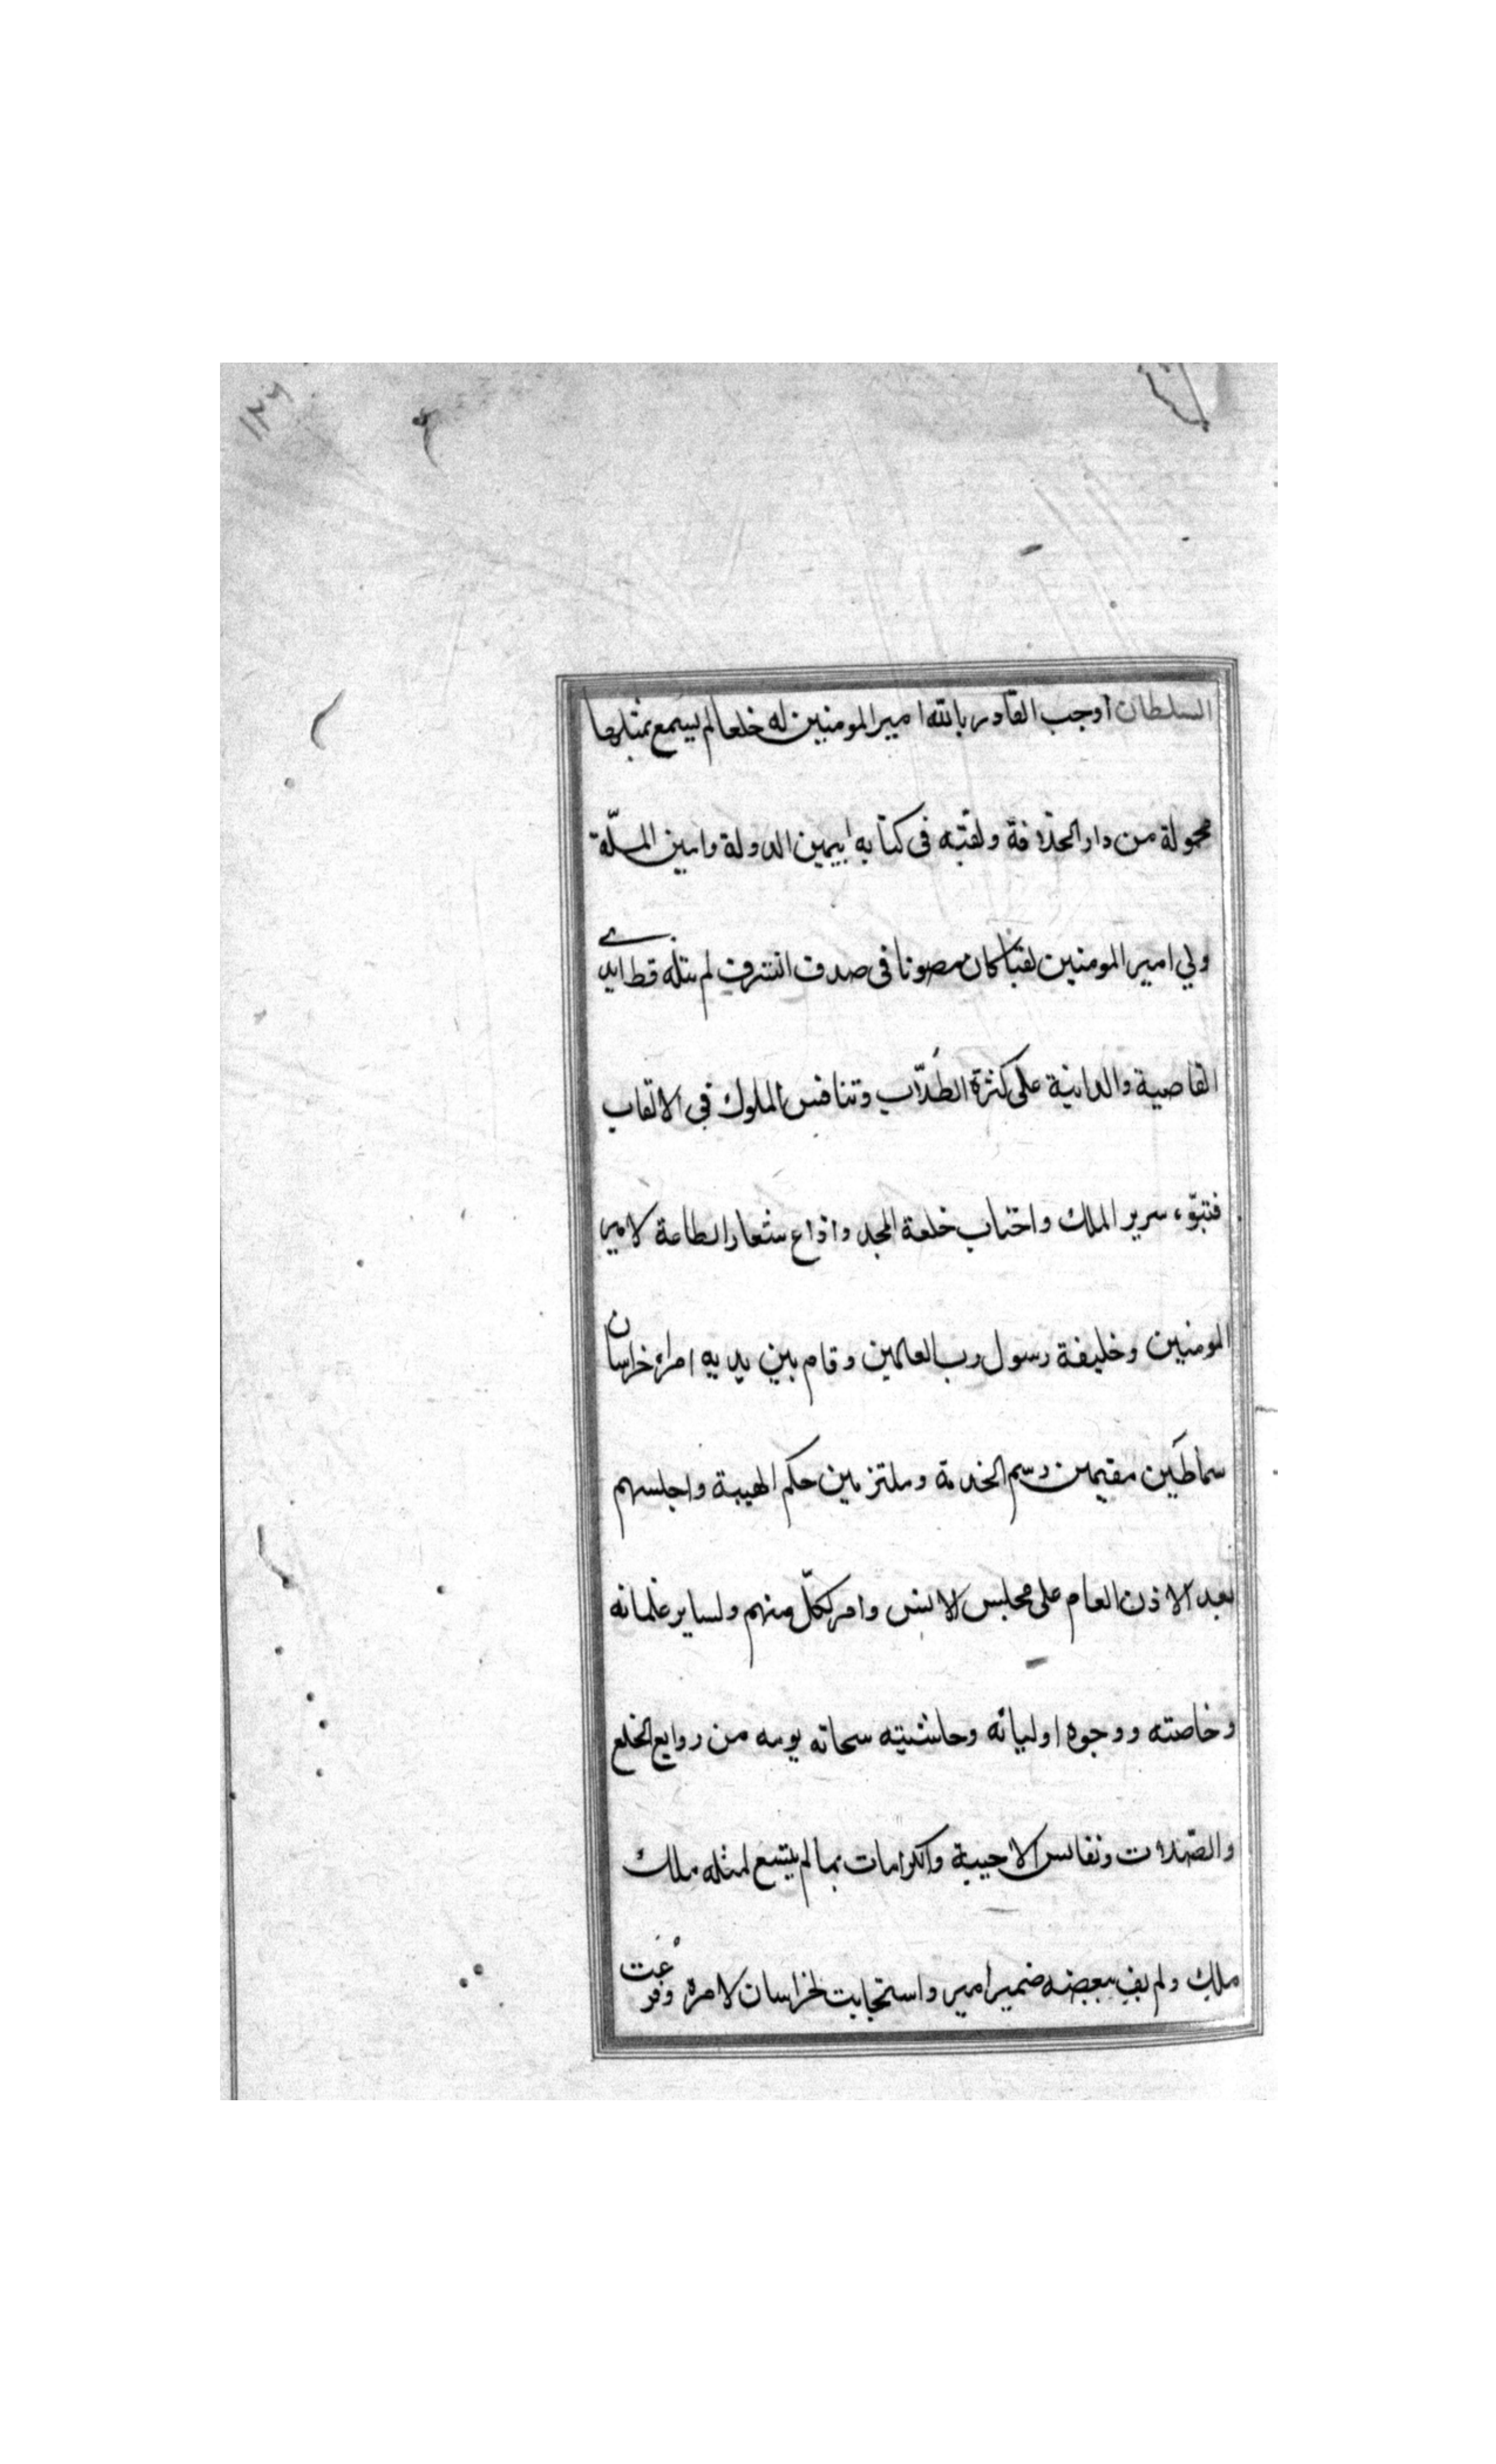 السلطان أوجب القادر بالله امير المومنين له خلعا لم يسمع بمثلها
محمولة من دار الخلافة ولقبه فى كتابه ابيمين الدولة وامين الملّة
ولي امير المومنين لقبا كان مصونا فى صدف الشرف لم تنله قط ايدى
القاصية والدانية على كثرة الطلّاب وتنافس الملوك فى الالقاب
فتبوّء سرير الملك واجتاب خلعة المجد واذاع شعار الطاعة لامير
المومنين وخليفة رسول رب العالمين وقام بين يديه امراء خراسان
سماطين مقيمين رسم الخدمة وملتزمين حكم الهيبة واجلسهم
بعد الاذن العام على مجلس الانس وامر لكلّ منهم ولساير غلمانه
وخاصته ووجوه اوليائه وحاشيته سحاته يومه من روايع الخلع
والصّلات ونفائس الاحبية والكرامات بما لم يتسع لمثله ملك
ملك ولم يف ببعضه ضمير امير واستجابت خراسان لامره وفرعت